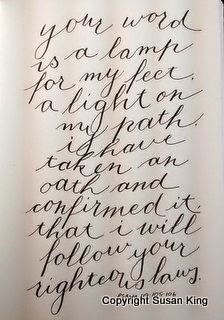 your word
is a lamp
for my feet,
a light on
my path.
i have
taken an
oath and
confirmed it,
that i will
follow your
righteous laws.
psalm 119:105-106
Copyright Susan King